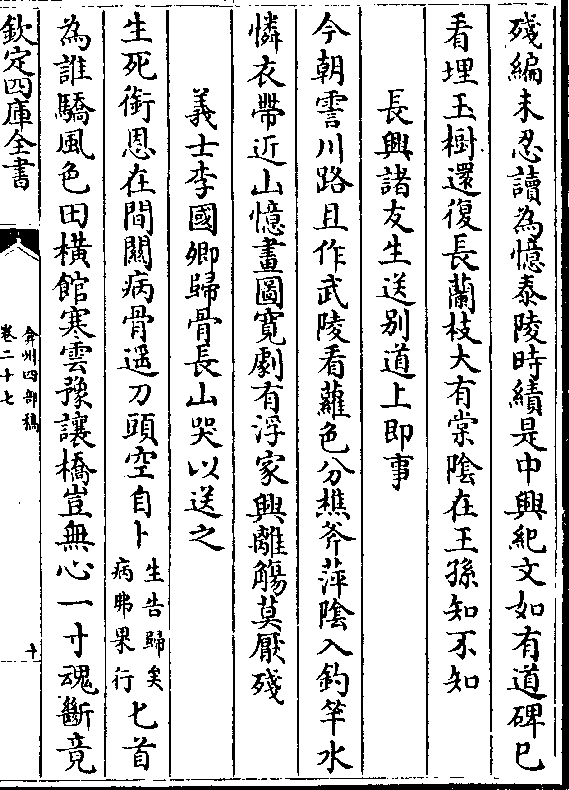 殘編未忍讀為憶泰陵時績是中興紀文如有道碑已
看埋玉樹還復長蘭枝大有棠陰在王孫知不知
長興諸友生送别道上即事
今朝霅川路且作武陵看蘿色分樵斧萍陰入釣竿水
憐衣帶近山憶畫圖寛劇有浮家興離觴莫厭殘
義士李國卿歸骨長山哭以送之
生死銜恩在間關病骨遥刀頭空自卜
生告歸矣
病果行
匕首
為誰驕風色田橫館寒雲豫讓橋豈無心一寸魂斷竟
欽定四庫全書
弇州四部稿
卷二十七
十